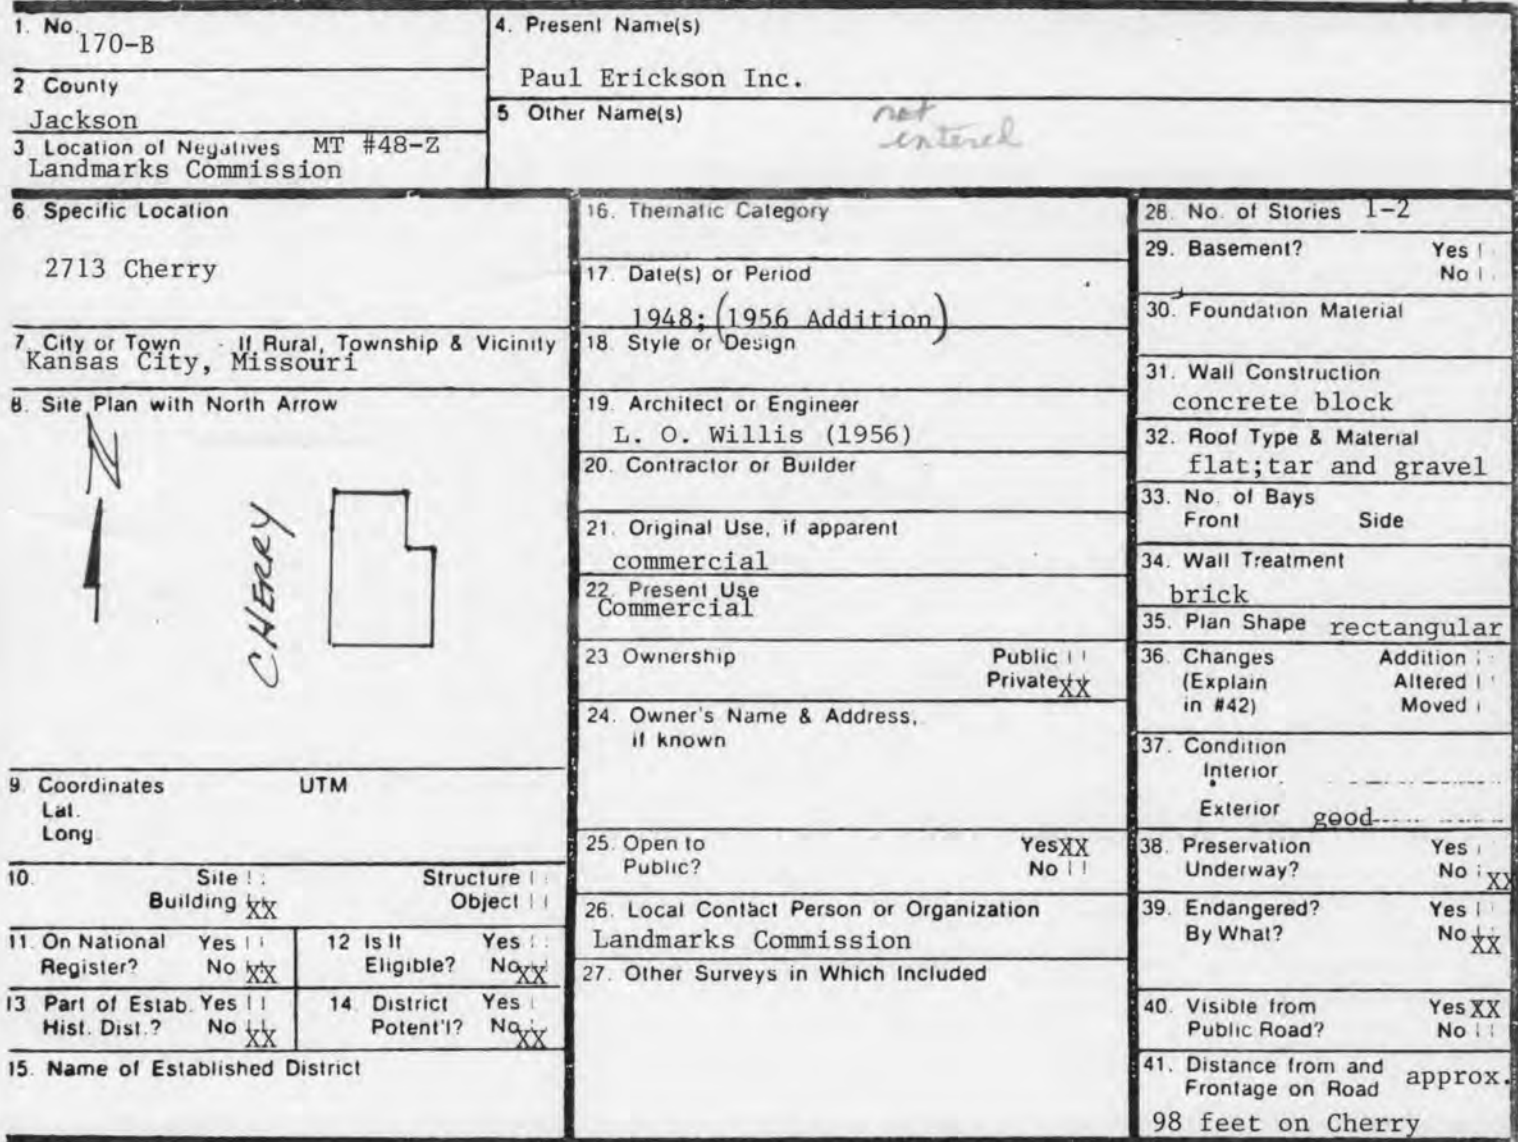 1. No. 170-B
2 County
Jackson
3 Location of Negatives MT #48-Z
Landmarks Commission
4. Present Name(s)
Paul Erickson Inc.
5 Other Name(s)
not
entered
6. Specific Location
2713 Cherry
7. City or Town If Rural, Township & Vicinity
Kansas City, Missouri
8. Site Plan with North Arrow
N
CHERRY
9. Coordinates UTM
Lat.
Long.
10. Site Structure
Building XX Object
11. On National Yes
Register? No XX
12 Is It Yes
Eligible? No XX
13. Part of Estab. Yes
Hist. Dist.? No XX
14. District Yes
Potent'l? No XX
15. Name of Established District
16. Thematic Category
17. Date(s) or Period
1948; (1956 Addition)
18. Style or Design
19. Architect or Engineer
L. O. Willis (1956)
20. Contractor or Builder
21. Original Use, if apparent
commercial
22. Present Use
Commercial
23 Ownership Public
Private XX
24. Owner's Name & Address,
if known
25. Open to Yes XX
Public? No
26. Local Contact Person or Organization
Landmarks Commission
27. Other Surveys in Which Included
28. No. of Stories 1-2
29. Basement? Yes
No
30. Foundation Material
31. Wall Construction
concrete block
32. Roof Type & Material
flat;tar and gravel
33. No. of Bays
Front Side
34. Wall Treatment
brick
35. Plan Shape rectangular
36. Changes Addition
(Explain Altered
in #42) Moved
37. Condition
Interior
Exterior good
38. Preservation Yes
Underway? No XX
39. Endangered? Yes
By What? No XX
40. Visible from Yes XX
Public Road? No
41. Distance from and
Frontage on Road approx.
98 feet on Cherry